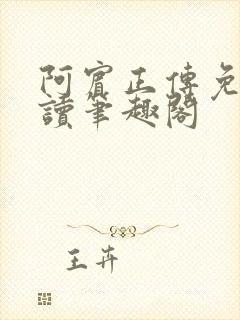 阿賓正傳免
讀筆趣閣
王卉